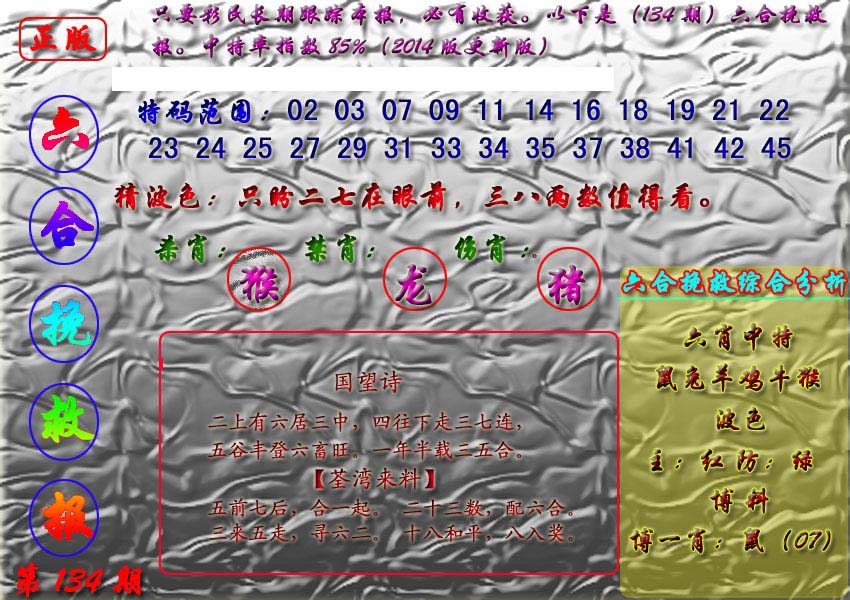 正版
只要彩民长期跟踪本报，必有收获。以下是（134期）六合挽救
报。中特率指数85%（2014版更新版）
六
合
挽
救
报
第134期
特码范围：02 03 07 09 11 14 16 18 19 21 22
23 24 25 27 29 31 33 34 35 37 38 41 42 45
猜波色：只盼二七在眼前，三八两数值得看。
杀肖：猴 禁肖：龙 伤肖：猪
国望诗
二上有六居三中，四往下走三七连，
五谷丰登六畜旺。一年半载三五合。
【荃湾来料】
五前七后，合一起。 二十三数，配六合。
三来五走，寻六二。 十八和平，八入奖。
六合挽救综合分析
六肖中特
鼠兔羊鸡牛猴
波色
主：红防：绿
博料
博一肖：鼠（07）